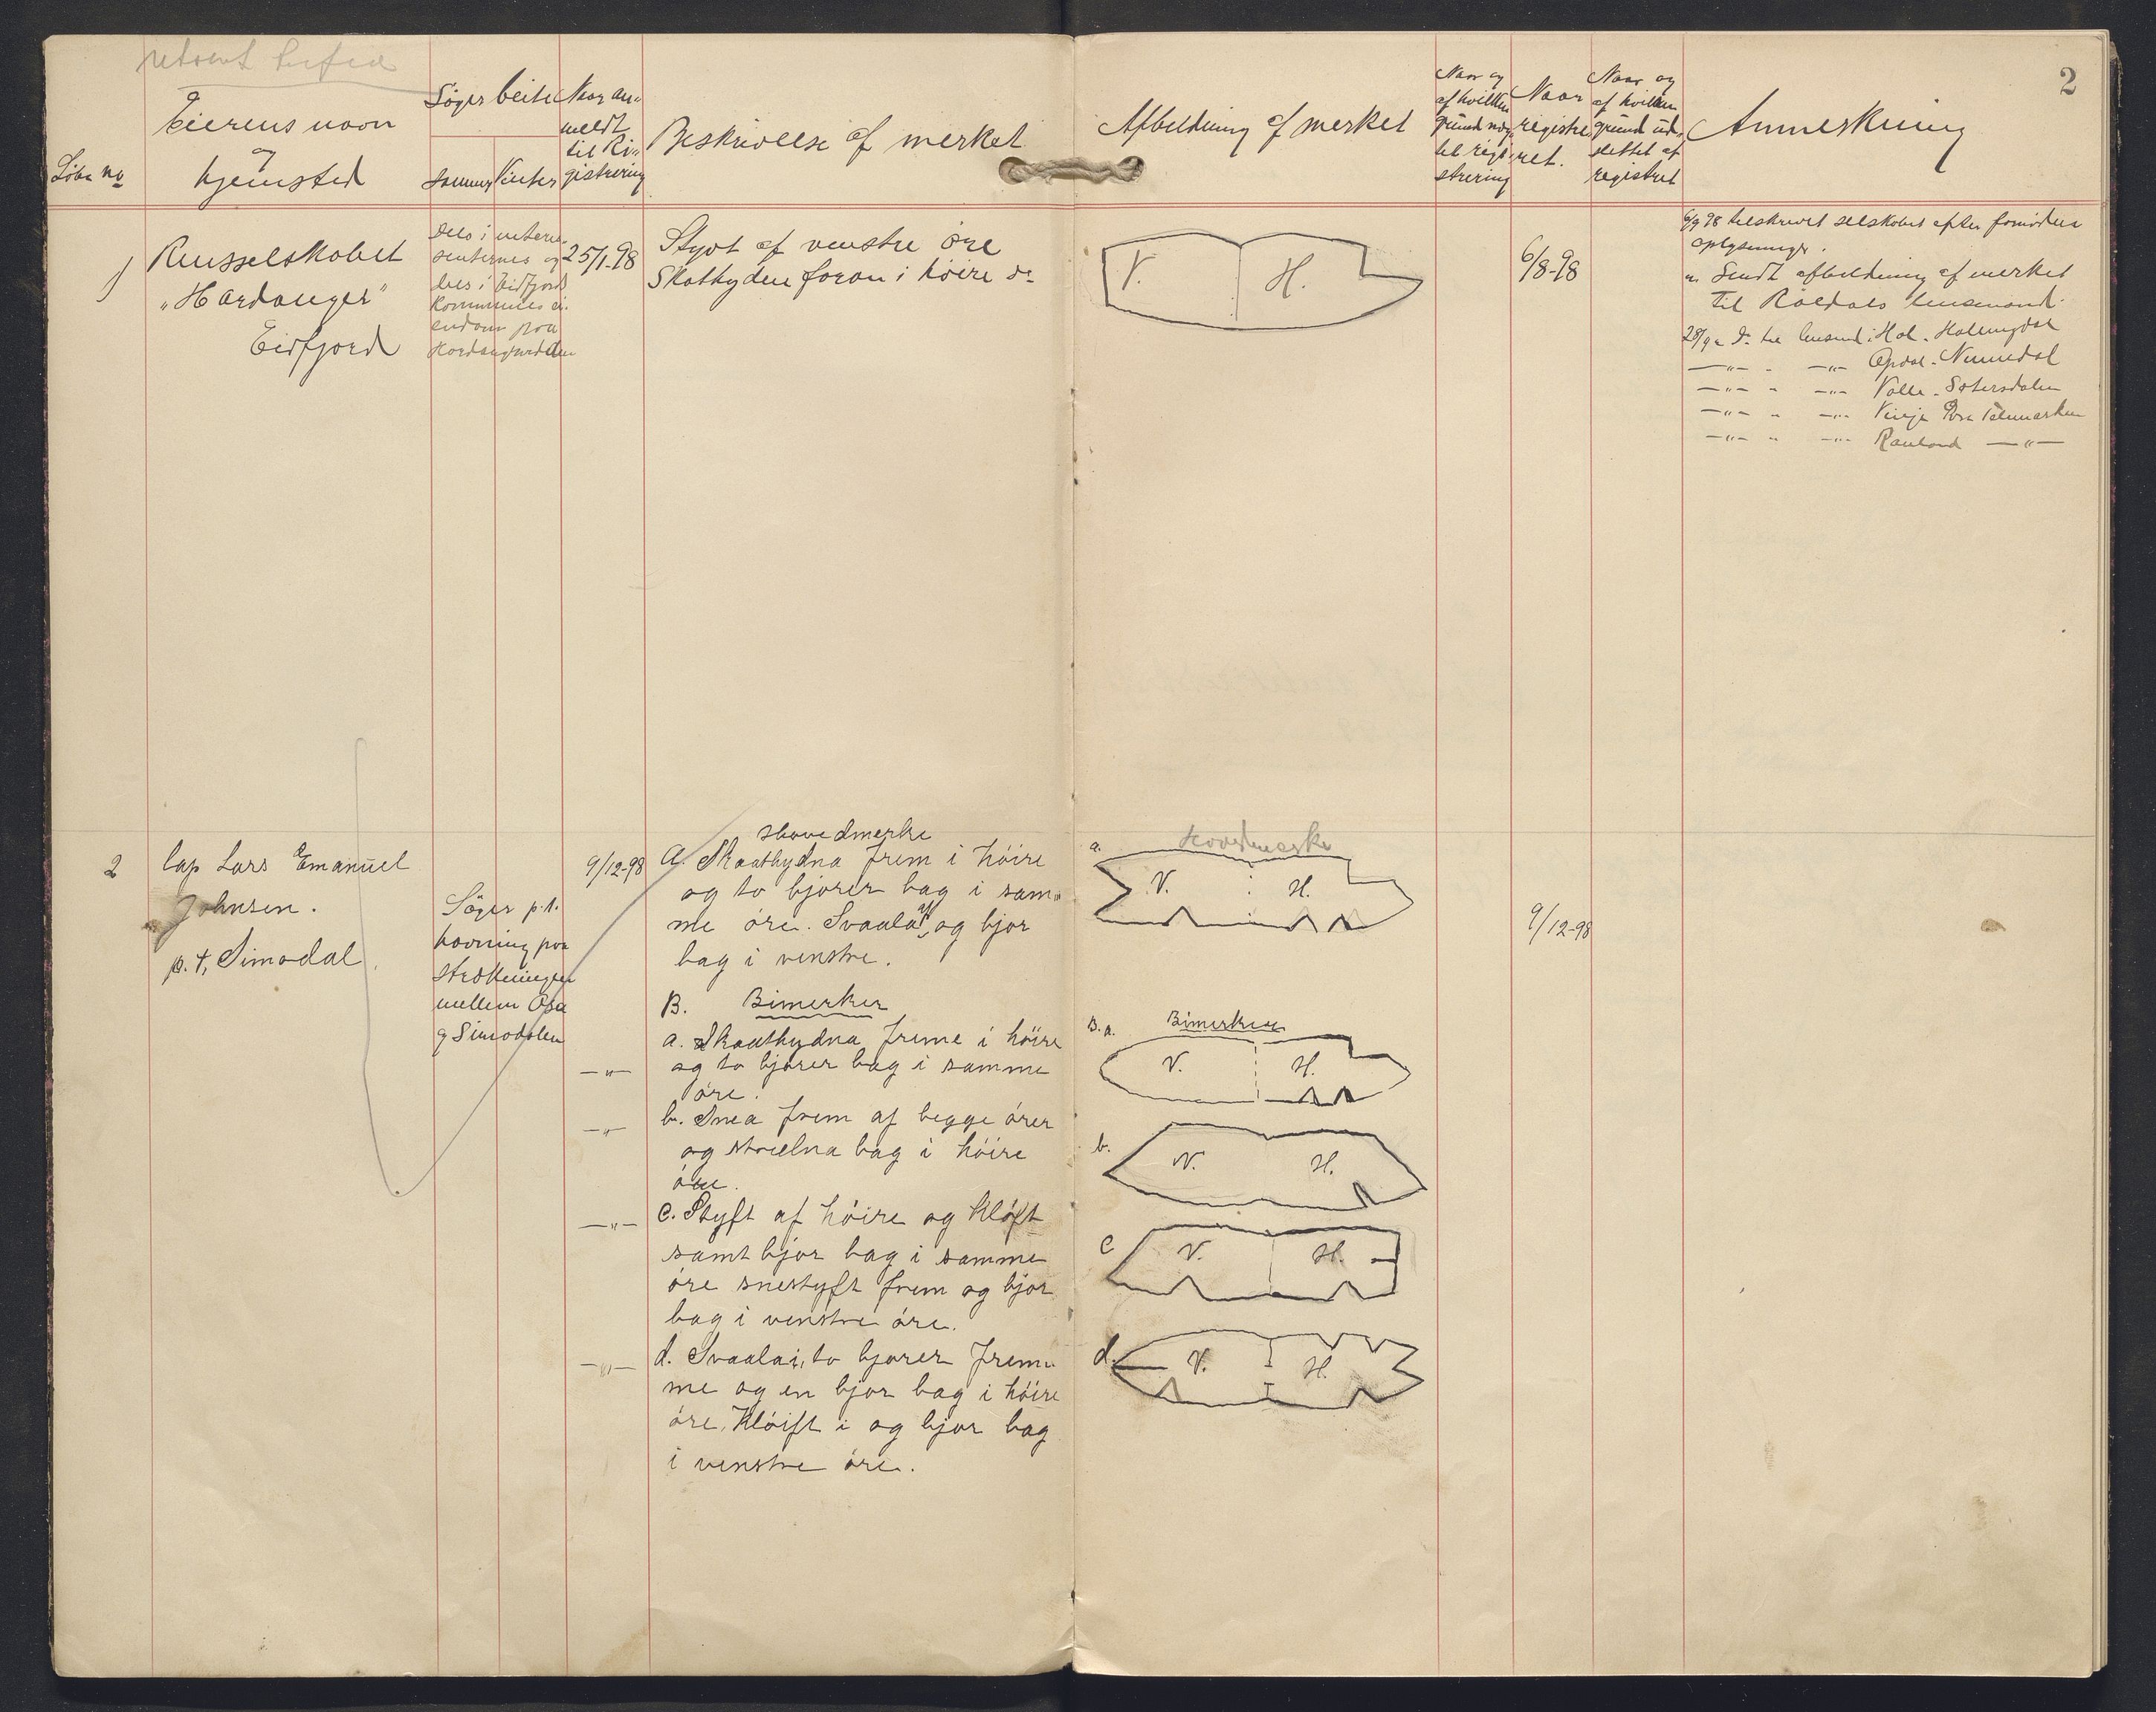 2
Löbe no
Eierens navn
og
hjemsted
Söger beite
Sommer
Vinter
Naar an-
meldt
til Ri-
gistrering
Beskrivelse af merket
Afbildning af merket
Naar og
af hvilken
grund neg-
tet regi-
strering
Naar
registre-
ret.
Naar og
af hvilken
grund ud-
slettet af
registret
Anmerkning
1
Rensselskabet
"Hardanger"
Eidfjord
Dels i
og
dels i Eidfjord
kommunes ei-
endom paa
Hardangervidden
25/1-98
Styvt af venstre öre
Skathyden foran i höire do
V. H.
6/8-98
6/9 98 tilskrevet selskabet efter fornødne
oplysninger.
" Sendt afbildning af merket
til Röldals lensmand.
28/9 " Do til lensmd i Hol. Hallingdal
—"— " —"— Opdal - Numedal
—"— " —"— Valle - Sætersdalen
—"— " —"— Vinje Øvre Telemarken
—"— " —"— Rauland —"—
2
lap Lars Emanuel
Johnsen.
p.t. Simodal
Söger p.t.
havning paa
strækningen
mellem Osa
og Simodalen
9/12-98
Hovedmerke
A. Skaathydna frem i höire
og to bjorer bag i sam-
me öre. Svaala af, og bjor
bag i venstre.
B. Bimerker
a. Skaathydna freme i höire
—"— og to bjorer bag i samme
öre.
—"— b. Snea frem af begge örer
og strælna bag i höire
öre.
—"— c. Styft af höire og klöft
samt bjor bag i samme
öre snestyft frem og bjor
bag i venstre öre.
—"— d. Svaala i, to bjorer frem-
me og en bjor bag i höire
öre, klöift i og bjor bag
i venstre öre.
a. Hovedmerke
V. H.
9/12-98
B. a. Bimerker
V. H.
b. V. H.
c V. H.
d. V. H.